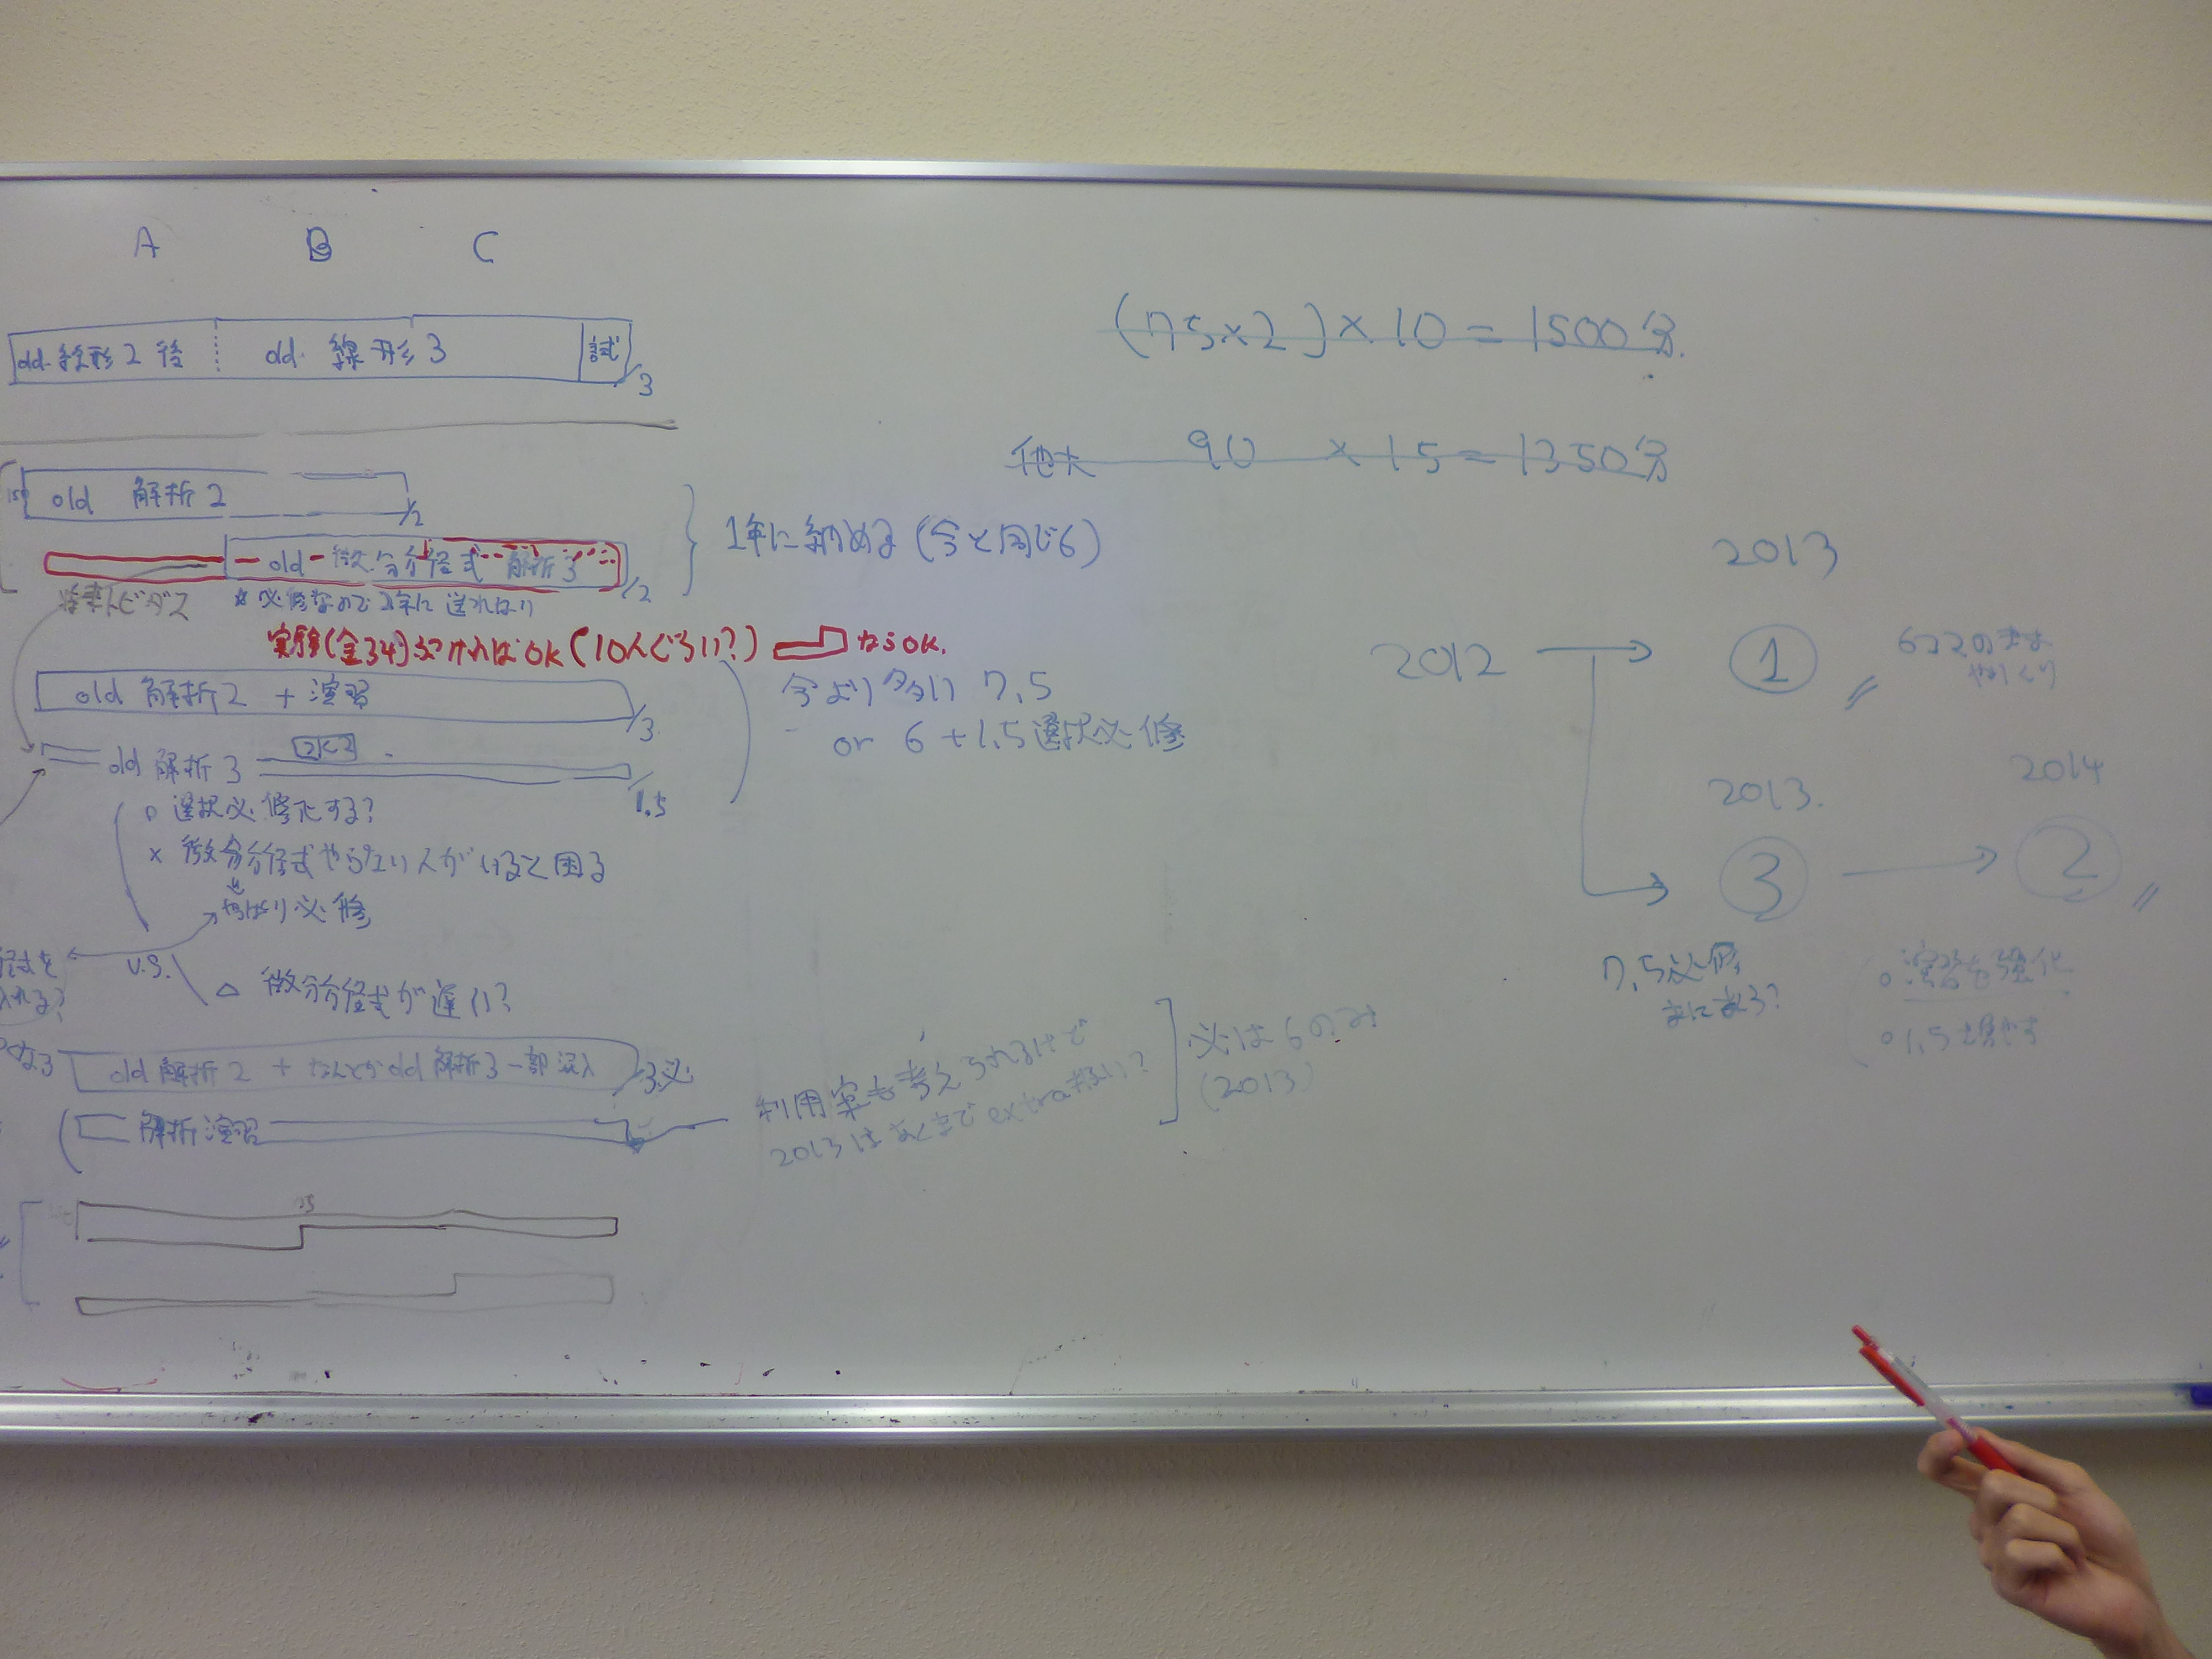 A B C
old 線形2後 old 線形3 試 /3
old 解析2 /2
old 微分方程式 解析3 /2
1年に納める (今と同じ6)
※必修なので2年に送れない
実験(金34)ぶつければOK (10人ぐらい?) ならOK.
old 解析2 + 演習 /3
今より多い 7.5
or 6 + 1.5選択必修
old 解析3 2に2 /1.5
○ 選択必修にする?
× 微分方程式やらない人がいると困る
やはり必修
v.s. △ 微分方程式が遅い?
old 解析2 + なんとかold 解析3一部混入 /3必
解析演習
利用案も考えられるけど
2013はあくまで extra扱い?
必は6のみ
(2013)
(75×2)×10 = 1500分.
他大 90 × 15 = 1350分
2013
2012 → ① 6コマのまま
やりくり
2013. 2014
③ → ②
7.5必修
まにあう?
○ 演習も強化
○ 1.5を増やす